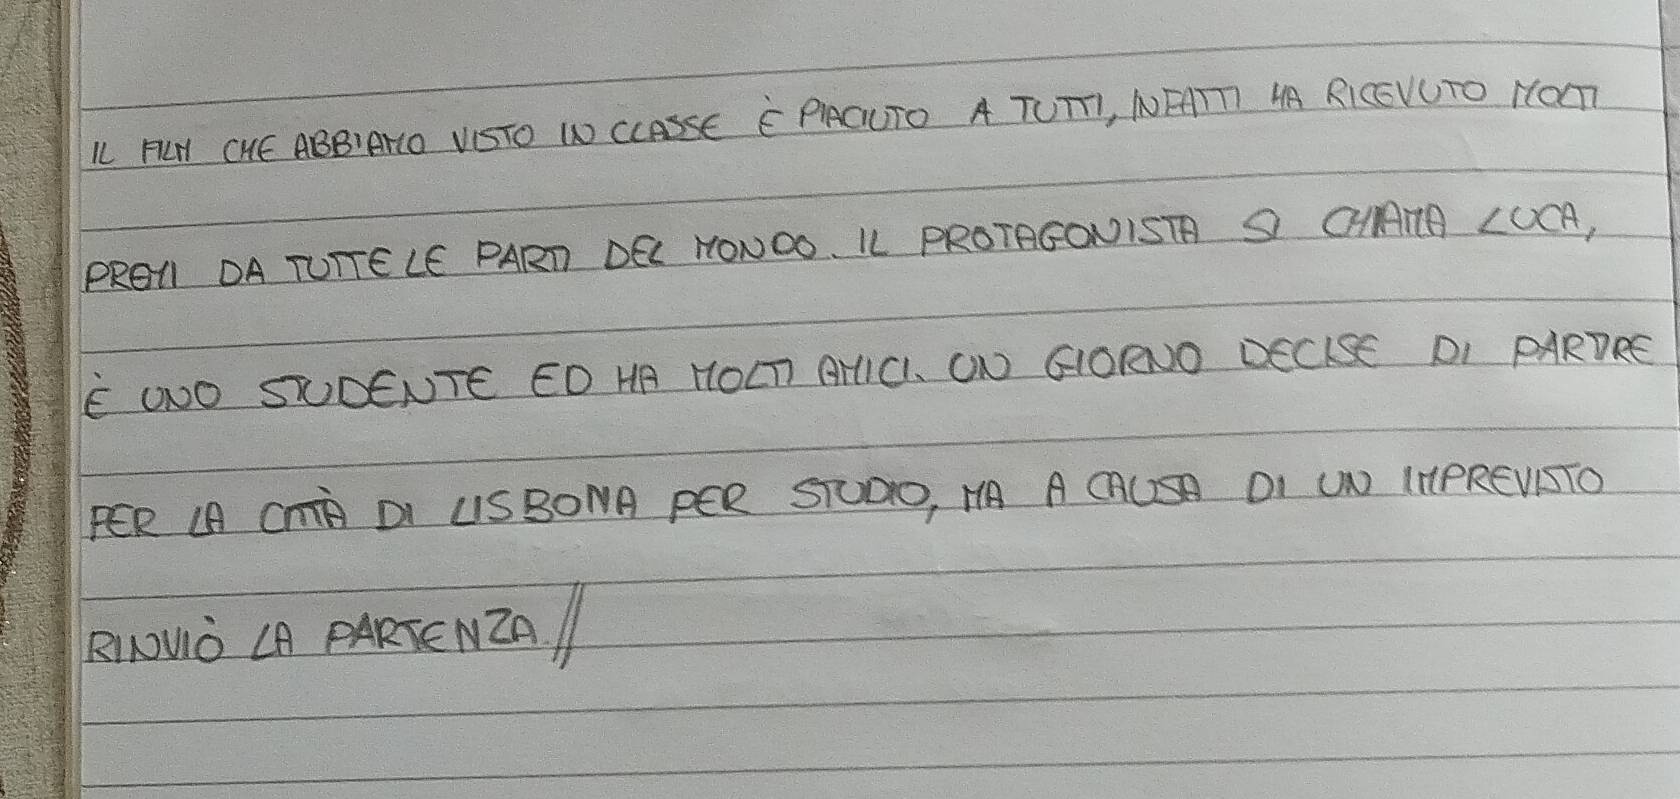 IL FILM CHE ABBIAMO VISTO IN CLASSE È PIACIUTO A TUTTI, INFATTI HA RICEVUTO MOLTI
PREMI DA TUTTE LE PARTI DEL MONDO. IL PROTAGONISTA SI CHIAMA LUCA,
È UNO STUDENTE ED HA MOLTI AMICI. UN GIORNO DECISE DI PARTIRE
PER LA CITTÀ DI LISBONA PER STUDIO, MA A CAUSA DI UN IMPREVISTO
RINVIÒ LA PARTENZA.//